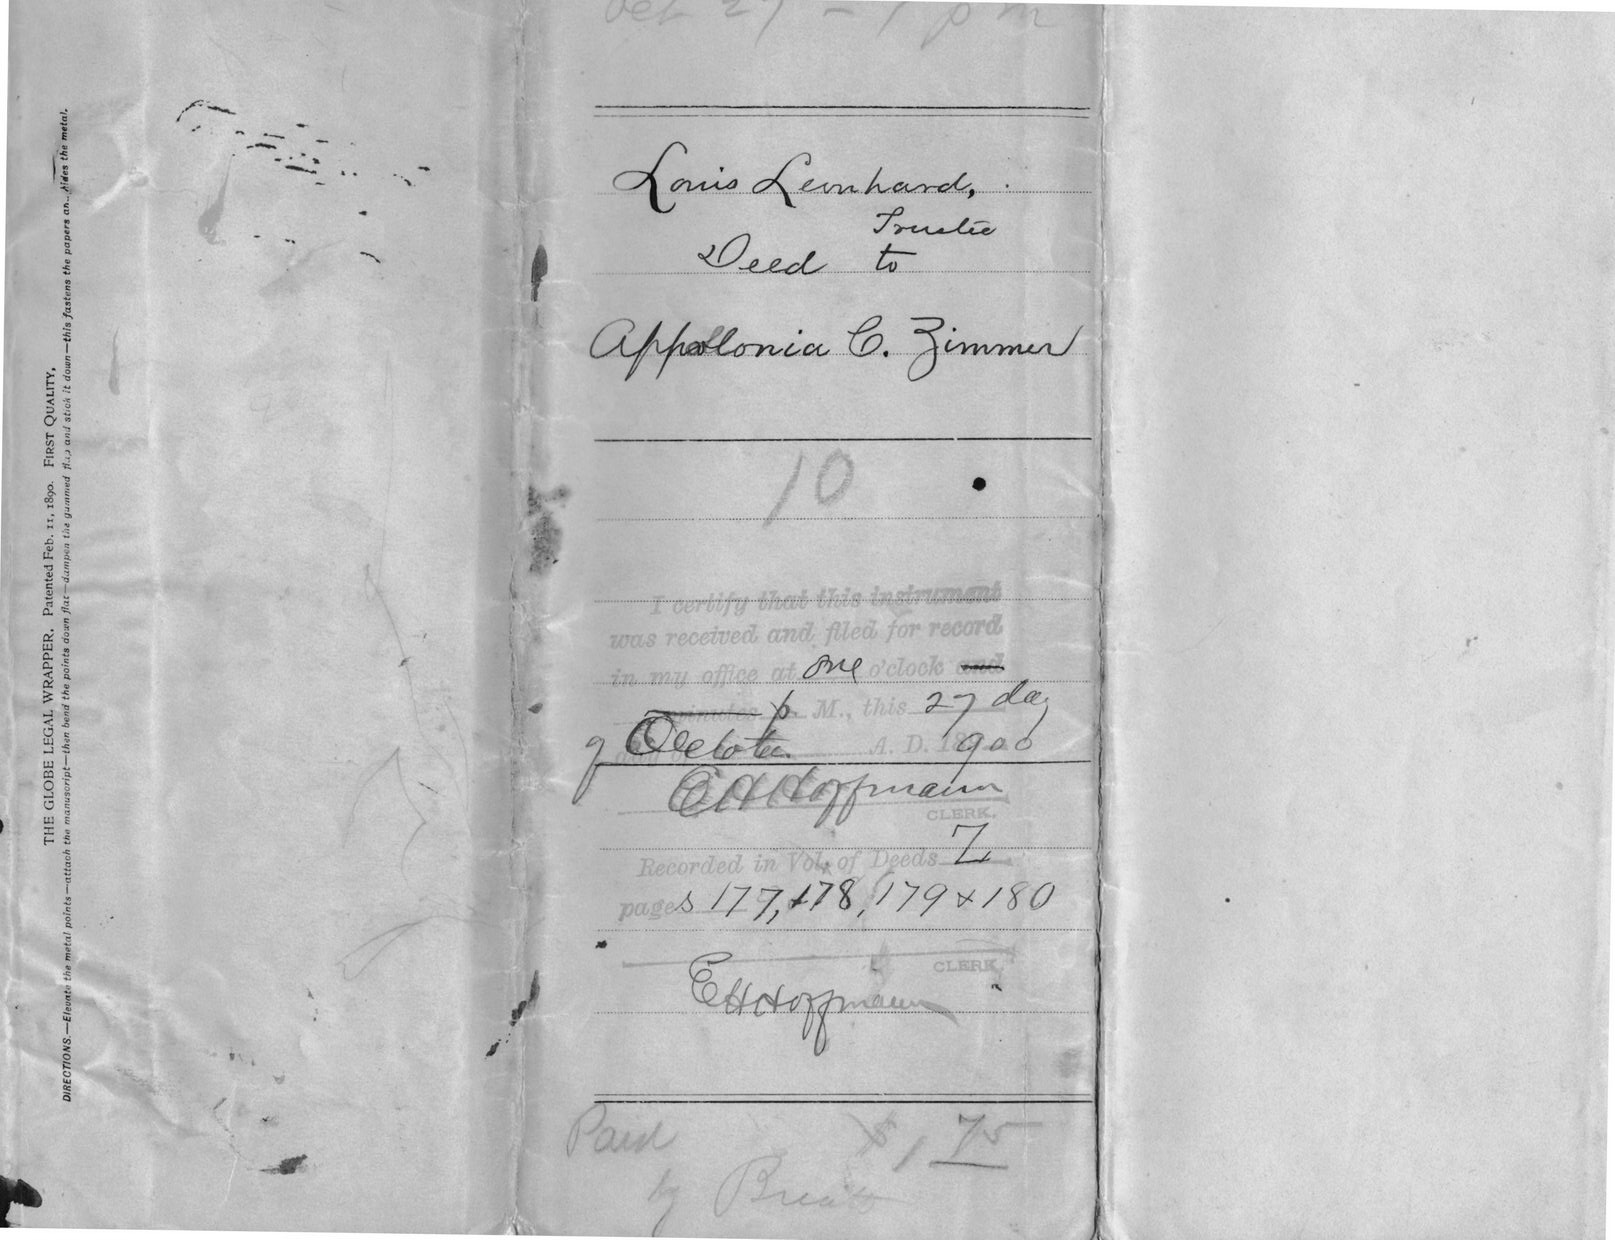 THE GLOBE LEGAL WRAPPER. Patented Feb. 11, 1890. FIRST QUALITY,
DIRECTIONS.—Elevate the metal points—attach the manuscript—then bend the points down flat—dampen the gummed flap and stick it down—this fastens the papers an.. hides the metal.
Oct 27 - 1 pm
Louis Leonhard,
Trustee
Deed to
Appollonia C. Zimmer
10
I certify that this instrument
was received and filed for record
in my office at one o'clock and
minutes p M., this 27 day
of October A. D. 18 900
E H Hoffmann
CLERK.
Recorded in Vol. of Deeds Z
pages 177, 178, 179 & 180
CLERK.
E H Hoffmann
Paid $1 75
by